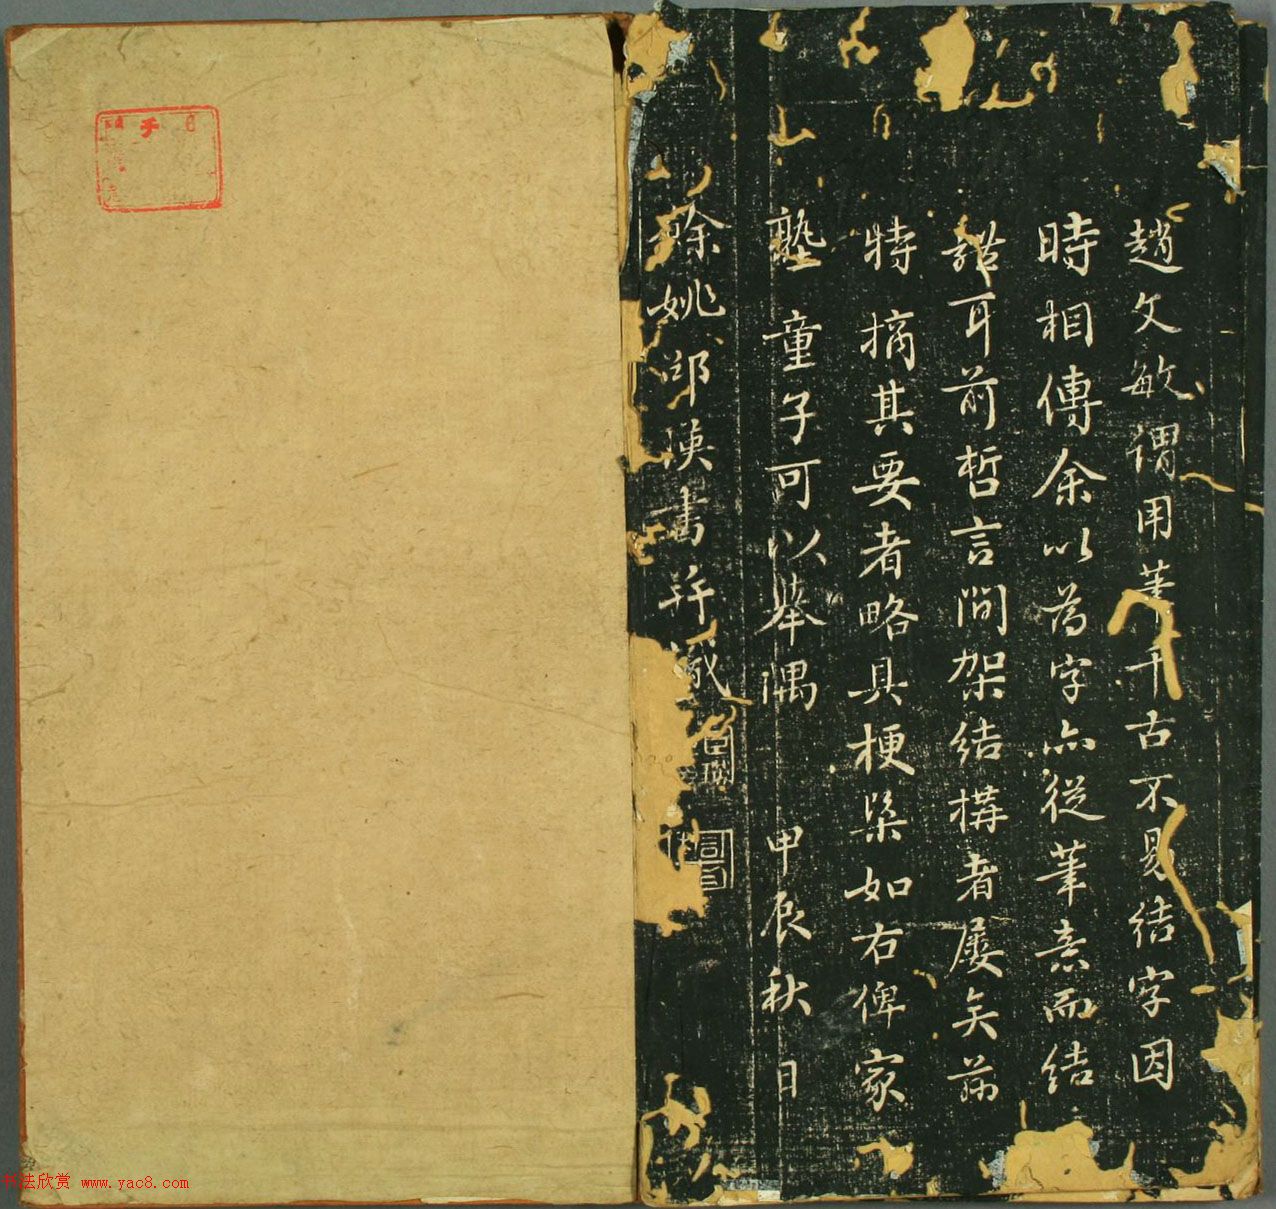 趙文敏謂用筆千古不易結字因
時相傳余以為字亦從筆意而結
耳前哲言間架結構者屡矣茲
特摘其要者略具梗槩如右俾家
塾童子可以舉隅 甲辰秋日
餘姚邵瑛書并識
书法欣赏 www.yac8.com